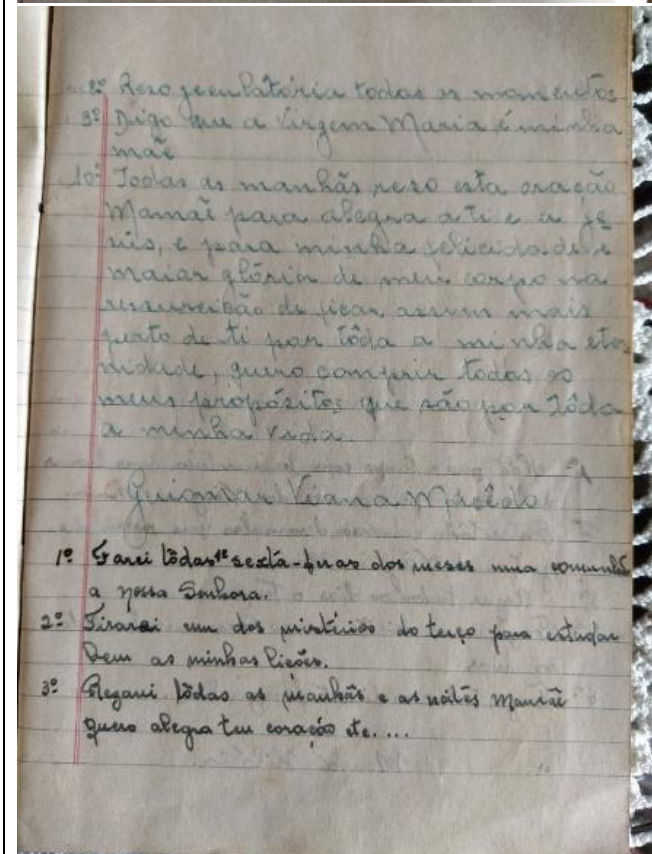 8º Rezo jeculatória todos os momentos
9º Digo que a Virgem Maria é minha
mãe
10º Todas as manhãs rezo esta oração
Mamãe para alegra a ti e a Je
sus, e para minha felicidade e
maior glória de meu corpo na
ressurreição de ficar assim mais
perto de ti por tôda a minha eter
nidade, quero comprir todos os
meus propósitos que são por tôda
a minha vida.
Guiomar Viana Macêdo
1º Farei tôdas 1ª sexta-feiras dos meses uma comunhão
a nossa Senhora.
2º Tirarei um dos mistérios do terço para estudar
bem as minhas lições.
3º Regarei tôdas as manhãs e as noites Mamãe
quero alegra teu coração etc....